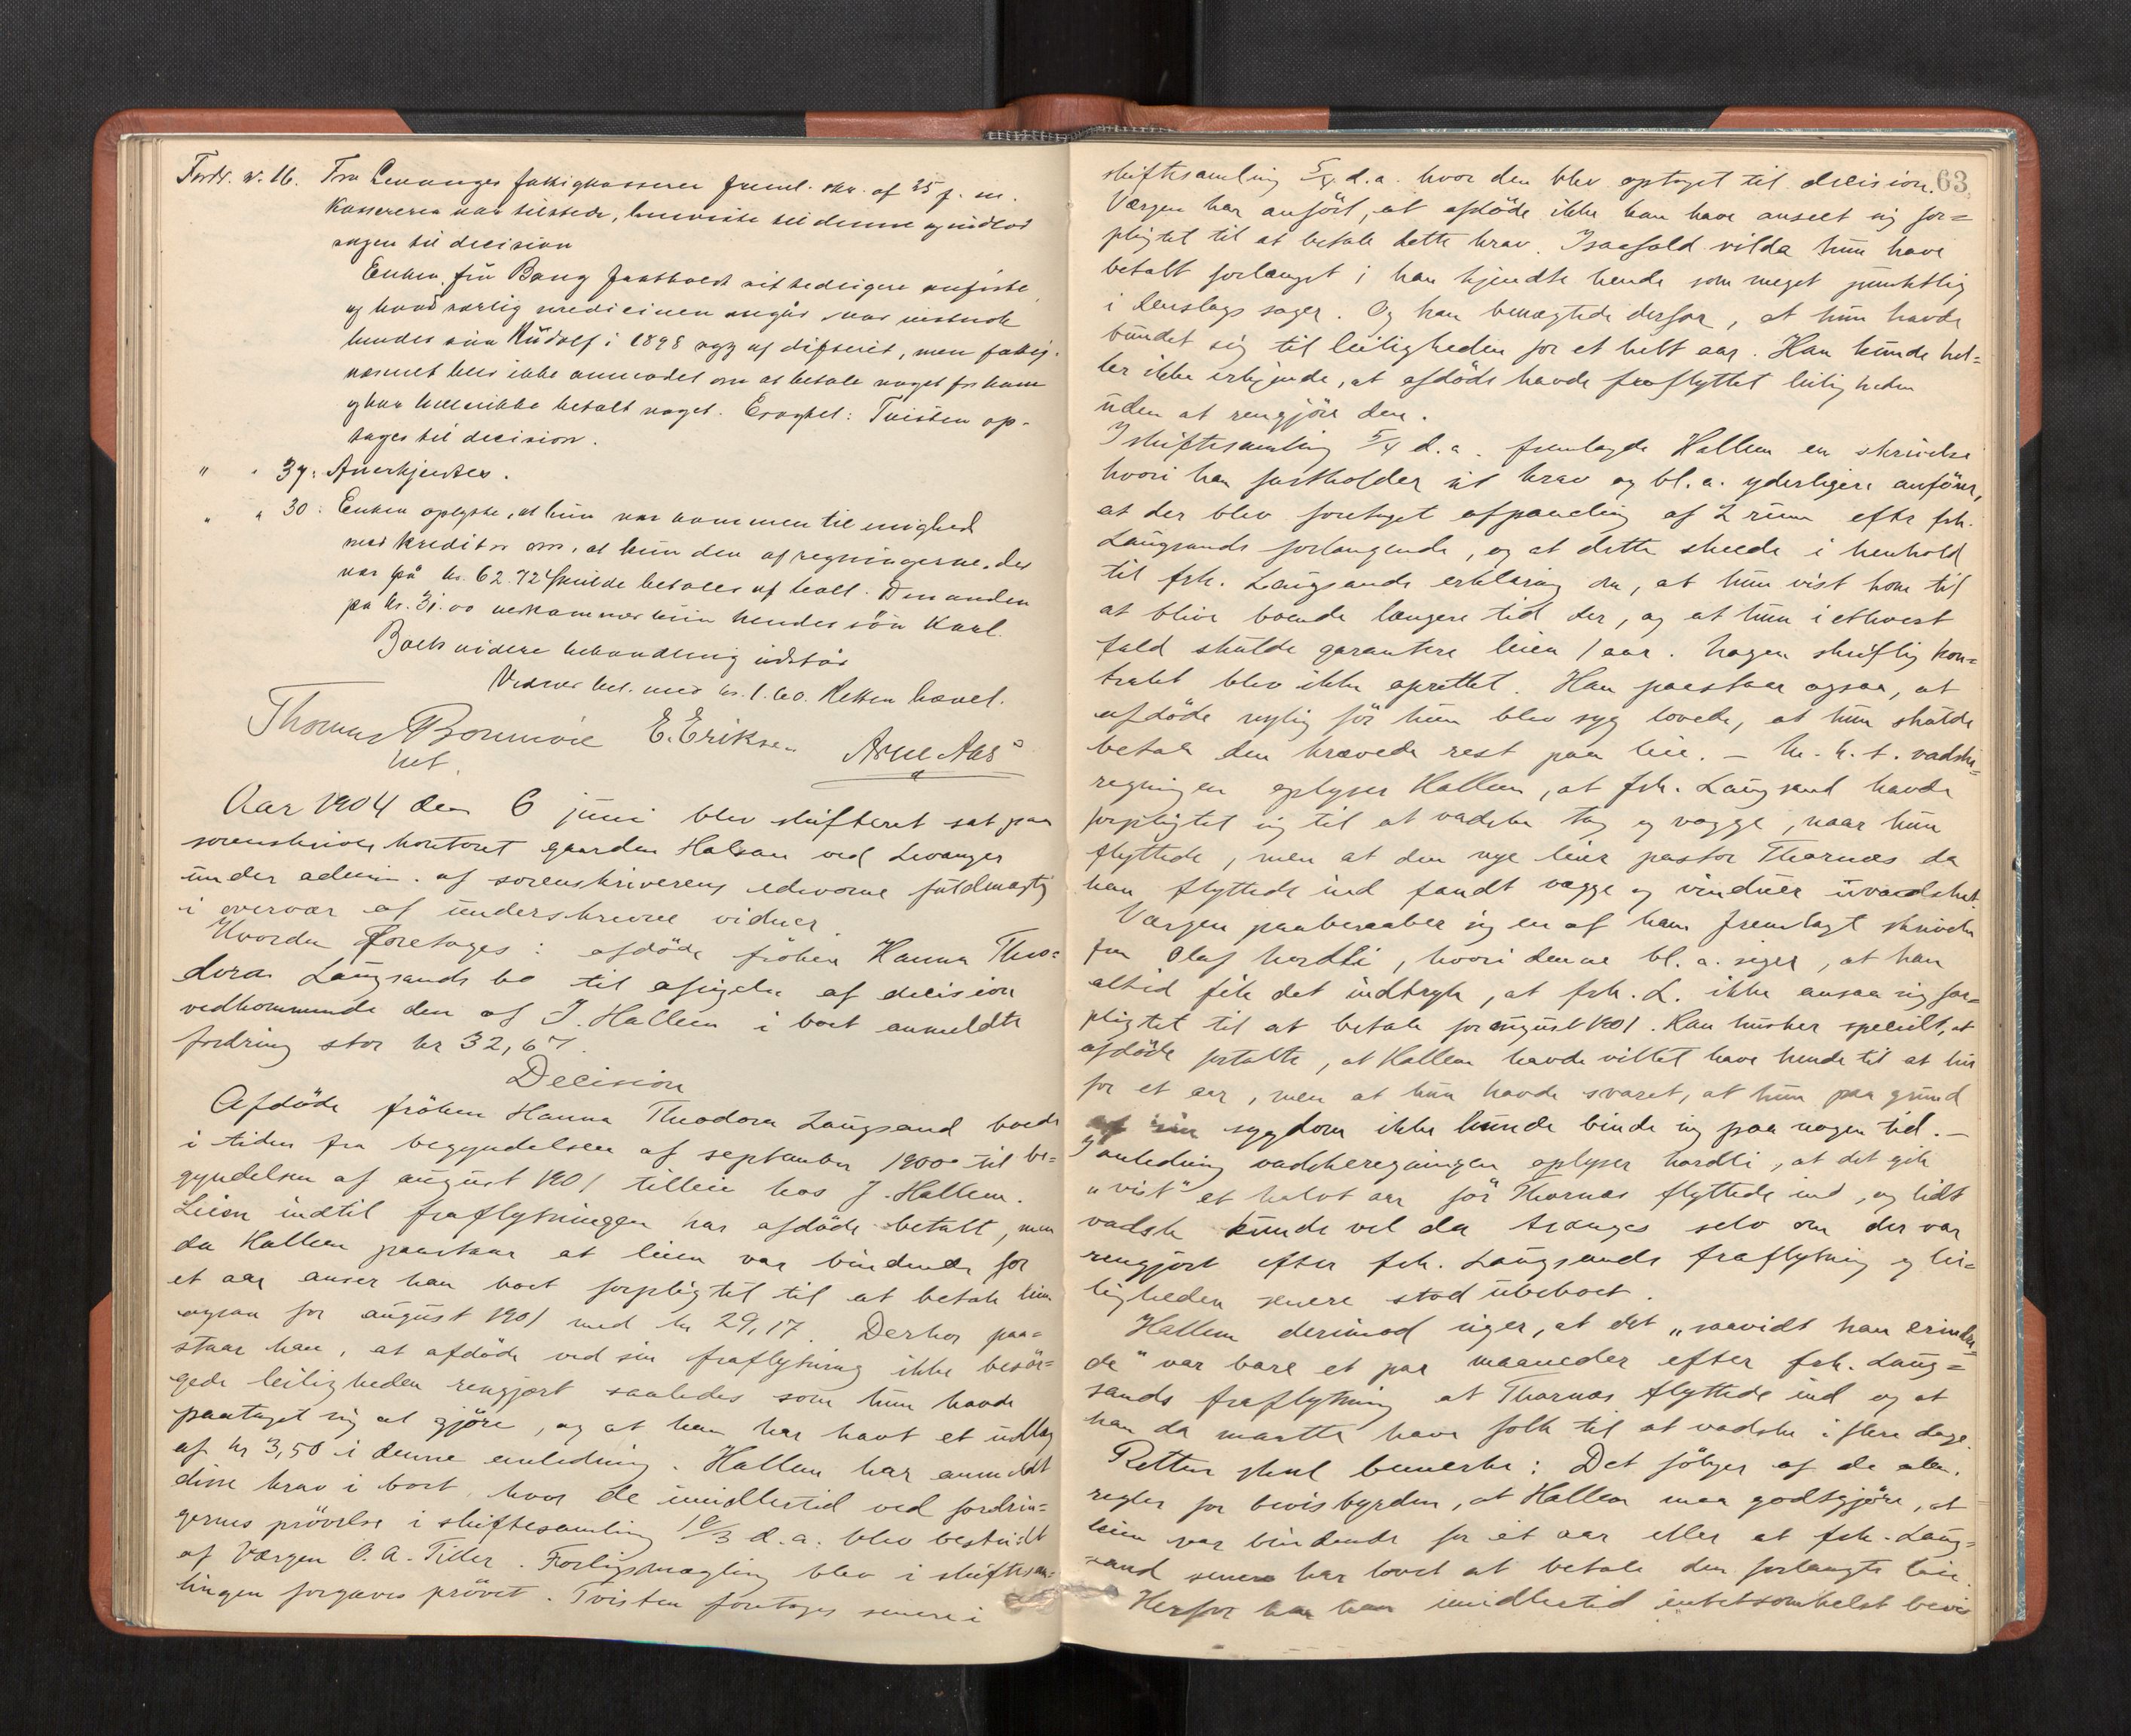 Fordr. n. 16. Fra Levanger fattigkasserer freml. skr. af 25 f. m.
Kassereren var tilstede, henviste til denne og indlod
sagen til decision
Enken fru Bang fastholdt sit tidligere anførte,
og hvad særlig medicinen angår var vistnok
hendes søn Rudolf i 1898 syg af difterit, men fattig-
væsenet blev ikke anmodet om at betale noget for ham
og har heller ikke betalt noget. Eragtet: Tvisten op-
tages til decision.
" " 37: Anerkjendtes.
" " 30: Enken oplyste, at hun var kommen til enighed
med kreditor om, at kun den af regningerne, der
var på kr. 62.72 skulde betales af boet. Den anden
på kr. 31.00 vedkommer kun hendes søn Karl.
Boets videre behandling udstår
Vidner bet. med kr. 1.60. Retten hævet.
Thomas Bonnevie E. Eriksen Arne Aas
const.
Aar 1904 den 6 juni blev skifteret sat paa
sorenskriverkontoret gaarden Halsan ved Levanger
under admin. af sorenskriverens edsvorne fuldmægtig
i overvær af underskrevne vidner.
Hvorda foretoges: afdøde frøken Hanna Theo=
doras Laugsands bo til afsigelse af decision
vedkommende den af J. Hallem i boet anmeldte
fordring stor kr 32,67.
Decision
Afdøde frøken Hanna Theodora Laugsand boede
i tiden fra begyndelsen af september 1900 til be=
gyndelsen af august 1901 tilleie hos J. Hallem.
Leien indtil fraflytningen har afdøde betalt, men
da Hallem paastaar at leien var bindende for
et aar anser han boet forpligtet til at betale leien
ogsaa for august 1901 med kr 29,17. Derhos paa=
staar han, at afdøde ved sin fraflytning ikke besør=
gede leiligheden rengjort saaledes som hun havde
paataget sig at gjøre, og at han har havt et udlæg
af kr 3,50 i denne anledning. Hallem har anmeldt
disse krav i boet, hvor de imidlertid ved fordrin=
gernes prøvelse i skiftesamling 10/3 d.a. blev bestridt
af Værgen O. A. Tiller. Forligsmægling blev i skiftesam=
lingen forgjæves prøvet. Tvisten foretoges senere i
63
skiftesamling 5/4 d.a. hvor den blev optaget til decision.
Værgen har anført, at afdøde ikke kan have anseet sig for=
pligtet til at betale dette krav. Isaafald vilde hun have
betalt forlangst; han kjendte hende som meget punktlig
i denslags sager. Og han benægtede derfor, at hun havde
bundet sig til leiligheden for et helt aar. Han kunde hel=
ler ikke erkjende, at afdøde havde fraflyttet leiligheden
uden at rengjøre den.
I skiftesamling 5/4 d.a. fremlagde Hallem en skrivelse
hvori han fastholder sit krav og bl. a. yderligere anfører,
at der blev foretaget afpaneling af 2 rum efter frk.
Laugsands forlangende, og at dette skeede i henhold
til frk. Laugsands erklæring om, at hun vist kom til
at blive boende længere tid der, og at hun i ethvert
fald skulde garantere leien 1 aar. Nogen skriftlig kon=
trakt blev ikke oprettet. Han paastaar ogsaa, at
afdøde nylig før hun blev syg lovede, at hun skulde
betale den krævede rest paa leie. – M. h. t. vadske=
regningen oplyser Hallem, at frk. Laugsand havde
forpligtet sig til at vadske tag og vægge, naar hun
flyttede, men at den nye leier pastor Thornæs da
han flyttede ind fandt vægge og vinduer uvadsket.
Værgen paaberaaber sig en af ham fremlagt skrivelse
fra Olaf Nordli, hvori denne bl. a. siger, at han
altid fik det indtryk, at frk. L. ikke ansaa sig for=
pligtet til at betale for august 1901. Han husker specielt, at
afdøde fortalte, at Hallem havde villet have hende til at leie
for et aar, men at hun havde svaret, at hun paa grund
af sin sygdom ikke kunde binde sig paa nogen tid. –
I anledning vadskeregningen oplyser Nordli, at det gik
"vist" et halvt aar før Thornæs flyttede ind, og lidt
vadsk kunde vel da trænges selv om der var
rengjort efter frk. Laugsands fraflytning og lei=
ligheden senere stod ubeboet.
Hallem derimod siger, at det "saavidt han erindre=
de" var bare et par maaneder efter frk. Laug=
sands fraflytning at Thornæs flyttede ind og at
han da maatte have folk til at vadske i flere dage.
Retten skal bemerke: Det følger af de alm.
regler for bevisbyrden, at Hallem maa godtgjøre, at
leien var bindende for et aar eller at frk. Laug=
sand senere har lovet at betale den forlangte leie.
Herfor har han imidlertid intetsomhelst bevis